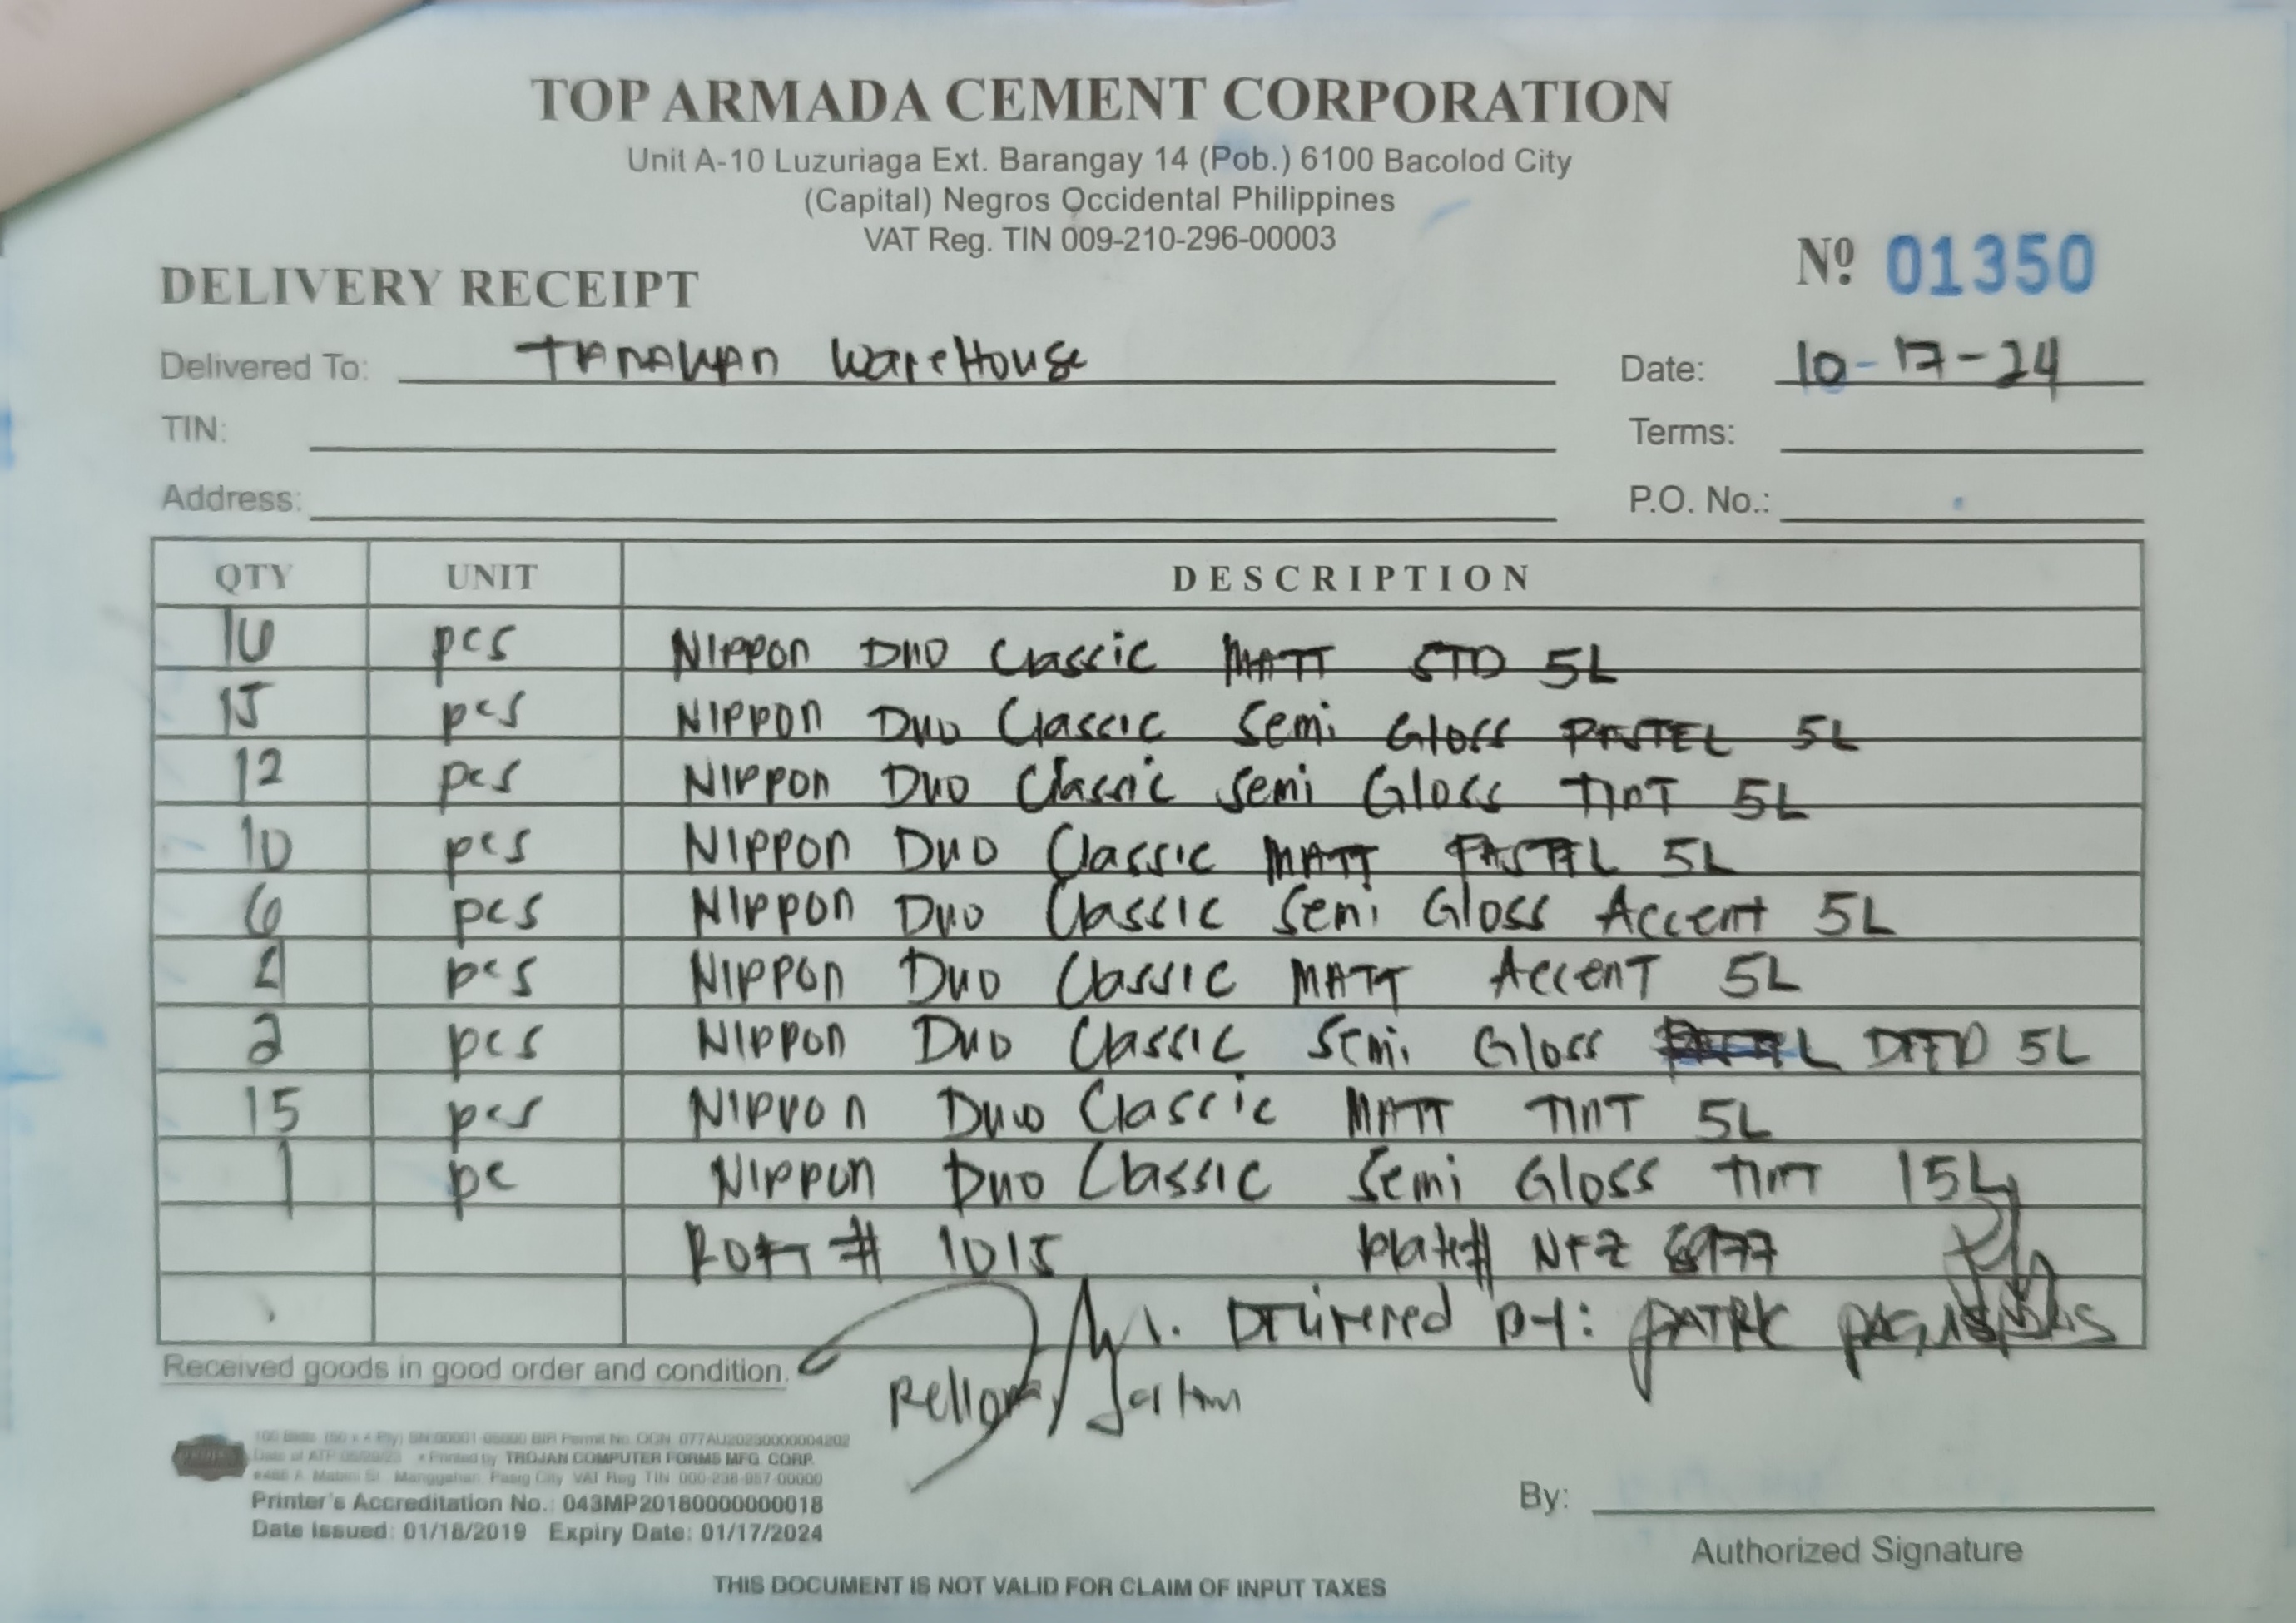 TOP ARMADA CEMENT CORPORATION
Unit A-10 Luzuriaga Ext. Barangay 14 (Pob.) 6100 Bacolod City
(Capital) Negros Occidental Philippines
VAT Reg. TIN 009-210-296-00003
Nº 01350
DELIVERY RECEIPT
Delivered To: TANAWAN WareHouse Date: 10-17-24
TIN: Terms:
Address: P.O. No.:
QTY UNIT DESCRIPTION
16 pcs NIPPON DUO Classic MATT STD 5L
15 pcs NIPPON DUO Classic Semi Gloss PASTEL 5L
12 pcs NIPPON DUO Classic Semi Gloss TINT 5L
10 pcs NIPPON DUO Classic MATT PASTEL 5L
6 pcs NIPPON DUO Classic Semi Gloss Accent 5L
pcs NIPPON DUO Classic MATT AccenT 5L
2 pcs NIPPON DUO Classic Semi Gloss 5L
15 pcs NIPPON DUO Classic MATT TINT 5L
1 pc NIPPON DUO Classic Semi Gloss TINT 15L
# 1015 plate#
Delivered by:
Received goods in good order and condition.
100 Bklts. (50 x 4 Ply) SN:00001-05000 BIR Permit No. OCN 077AU20230000004202
Printed by TROJAN COMPUTER FORMS MFG. CORP.
Manggahan, Pasig City VAT Reg TIN 000-238-957-00000
Printer's Accreditation No.: 043MP20180000000018
Date Issued: 01/18/2019 Expiry Date: 01/17/2024
By:
Authorized Signature
THIS DOCUMENT IS NOT VALID FOR CLAIM OF INPUT TAXES